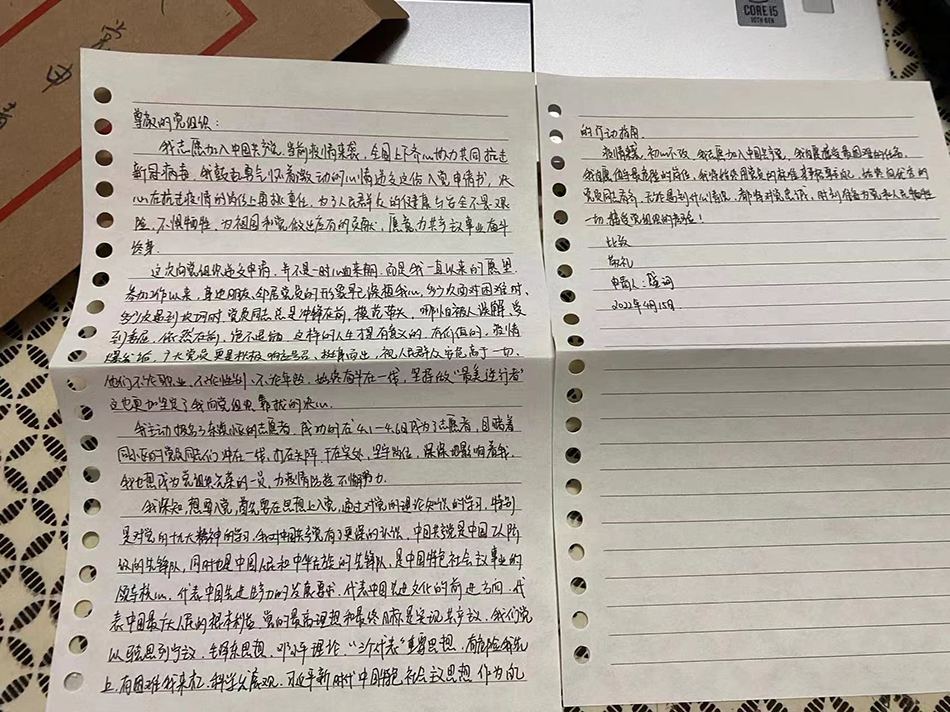 CORE i5
10TH GEN
尊敬的党组织：
我志愿加入中国共产党，当前疫情来袭，全国上下齐心协力共同抗击
新冠病毒，我鼓起勇气怀着激动的心情递交这份入党申请书，决
心在抗击疫情的岗位上勇敢重任，为了人民群众的健康与安全不畏艰
险、不惧牺牲，为祖国和党做过应有的贡献，愿意为共产主义事业奋斗
终身。
这次向党组织递交申请，并不是一时心血来潮，而是我一直以来的愿望。
参加工作以来，身边朋友、邻居党员的形象早已深植我心，多少次面对困难时、
多少次遇到坎坷时，党员同志总是冲锋在前，模范带头，哪怕被人误解、受
到责怪，依然在前，绝不退缩，这样的人生才是有意义的，有价值的，疫情
爆发后，广大党员更是积极响应号召、挺身而出，视人民群众安危高于一切，
他们不论职业、不论性别、不论年龄，始终奋斗在一线，坚持做“最美逆行者”
这也更加坚定了我向党组织靠拢的决心。
我主动报名了小区的志愿者，成功的在4.1-4.6日成为了志愿者，目睹着
同小区的党员同志们冲在一线，打在头阵，干在实处，坚守岗位，深深地影响着我，
我也想成为党组织光荣的一员，为疫情防控不懈努力。
我深知，想要入党，首先要在思想上入党，通过对党的理论知识的学习，特别
是对党的十九大精神的学习，我对中国共产党有了更深的认识，中国共产党是中国工人阶
级的先锋队，同时也是中国人民和中华民族的先锋队，是中国特色社会主义事业的
领导核心，代表中国先进生产力的发展要求，代表中国先进文化的前进方向，代
表中国最广大人民的根本利益，党的最高理想和最终目标是实现共产主义，我们党
以马克思列宁主义、毛泽东思想、邓小平理论、“三个代表”重要思想，有危险我先
上，有困难我来扛，科学发展观、习近平新时代中国特色社会主义思想作为的
的行动指南。
疫情肆虐，初心不改，我志愿加入中国共产党，我自愿接受最困难的任务，
我自愿值守最危险的岗位，我将按照党员的标准来要求自己，始终向优秀的
党员同志看齐，无论遇到什么情况，都将对党忠诚，时刻准备为党和人民牺牲
一切，接受党组织的考验！
此致
敬礼
申请人：
2022年4月15日